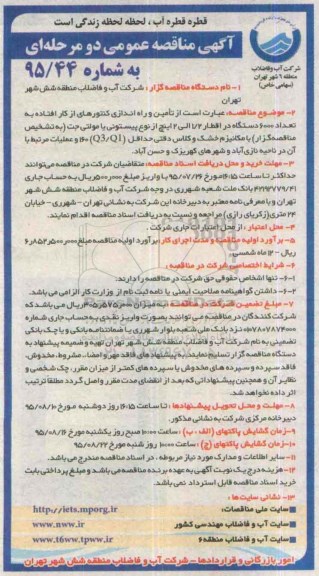 قطره قطره آب ، لحظه لحظه زندگی است
آگهی مناقصه عمومی دو مرحله‌ای
به شماره ۹۵/۴۴
شرکت آب و فاضلاب
منطقه ۶ شهر تهران
(سهامی خاص)
۱- نام دستگاه مناقصه گزار : شرکت آب و فاضلاب منطقه شش شهر
تهران
۲- موضوع مناقصه: عبارت است از تأمین و راه اندازی کنتورهای از کار افتاده به
تعداد ۶۰۰۰ دستگاه در اقطار ۱/۲ الی ۲ اینچ از نوع پیستونی یا مولتی جت (به تشخیص
مناقصه گزار) با مکانیزم خشک و کلاس دقتی حداقل (Q3/Q1) ۱۶۰ و عملیات مرتبط با
آن در ناحیه نازی آباد و شهرهای کهریزک و حسن آباد.
۳- مهلت خرید و محل دریافت اسناد مناقصه: متقاضیان شرکت در مناقصه می‌توانند
حداکثر تا ساعت ۱۶:۱۵ مورخ ۹۵/۰۷/۲۶ با واریز مبلغ ۵۰۰٫۰۰۰ ریال به حساب جاری
بانک ملت شعبه شهرری در وجه شرکت آب و فاضلاب منطقه شش شهر
تهران و با معرفی نامه معتبر به دبیرخانه این شرکت به نشانی تهران - شهرری - خیابان
۲۴ متری (زکریای رازی) مراجعه و نسبت به دریافت اسناد مناقصه اقدام نمایند.
۴- محل اعتبار: از محل اعتبارات جاری شرکت .
۵- برآورد اولیه مناقصه و مدت اجرای کار: برآورد اولیه مناقصه مبلغ
ریال - ۱۲ ماه شمسی
۶- شرایط اختصاصی شرکت در مناقصه :
۶-۱- تنها اشخاص حقوقی حق شرکت در مناقصه را دارند.
۶-۲- داشتن گواهینامه صلاحیت ایمنی یا نامه ثبت نام از وزارت کار الزامی می باشد.
۷- مبلغ تضمین شرکت در مناقصه: به میزان ریال می باشد که
شرکت کنندگان در مناقصه می توانند بصورت واریز نقدی به حساب جاری شماره
نزد بانک ملی شعبه بلوار شهرری یا ضمانتنامه بانکی و یا چک بانکی
تضمینی به نام شرکت آب و فاضلاب منطقه شش شهر تهران تهیه و ضمیمه پیشنهاد به
دستگاه مناقصه گزار تسلیم نمایند. به پیشنهاد های فاقد مهر و امضاء، مشروط، مخدوش،
فاقد سپرده و سپرده های مخدوش یا سپرده های کمتر از میزان مقرر، چک شخصی و
نظایر آن و همچنین پیشنهاداتی که بعد از انقضای مدت مقرر واصل گردد مطلقاً ترتیب
اثر داده نخواهد شد.
۸- مهلت و محل تحویل پیشنهادها : تا ساعت ۱۶:۱۵ روز دوشنبه مورخ ۹۵/۰۸/۱۰
دبیرخانه مرکزی شرکت به نشانی مذکور.
۹- زمان گشایش پاکتهای (الف ، ب) : ساعت ۱۰:۰۰ صبح روز یکشنبه مورخ ۹۵/۰۸/۱۶
۱۰- زمان گشایش پاکتهای (ج) : ساعت ۱۰:۰۰ روز شنبه مورخ ۹۵/۰۸/۲۲
۱۱- سایر اطلاعات و مدارک مورد نیاز مربوطه ، در اسناد مناقصه مندرج می باشد.
۱۲- هزینه درج یک نوبت آگهی به عهده برنده مناقصه می باشد و مبلغ پرداختی بابت
خرید اسناد مناقصه قابل استرداد نمی باشد.
۱۳- نشانی سایت ها :
سایت ملی مناقصات: http://iets.mporg.ir
سایت آب و فاضلاب مهندسی کشور www.nww.ir
سایت آب و فاضلاب منطقه ۶ www.t6ww.tpww.ir
امور بازرگانی و قراردادها - شرکت آب و فاضلاب منطقه شش شهر تهران